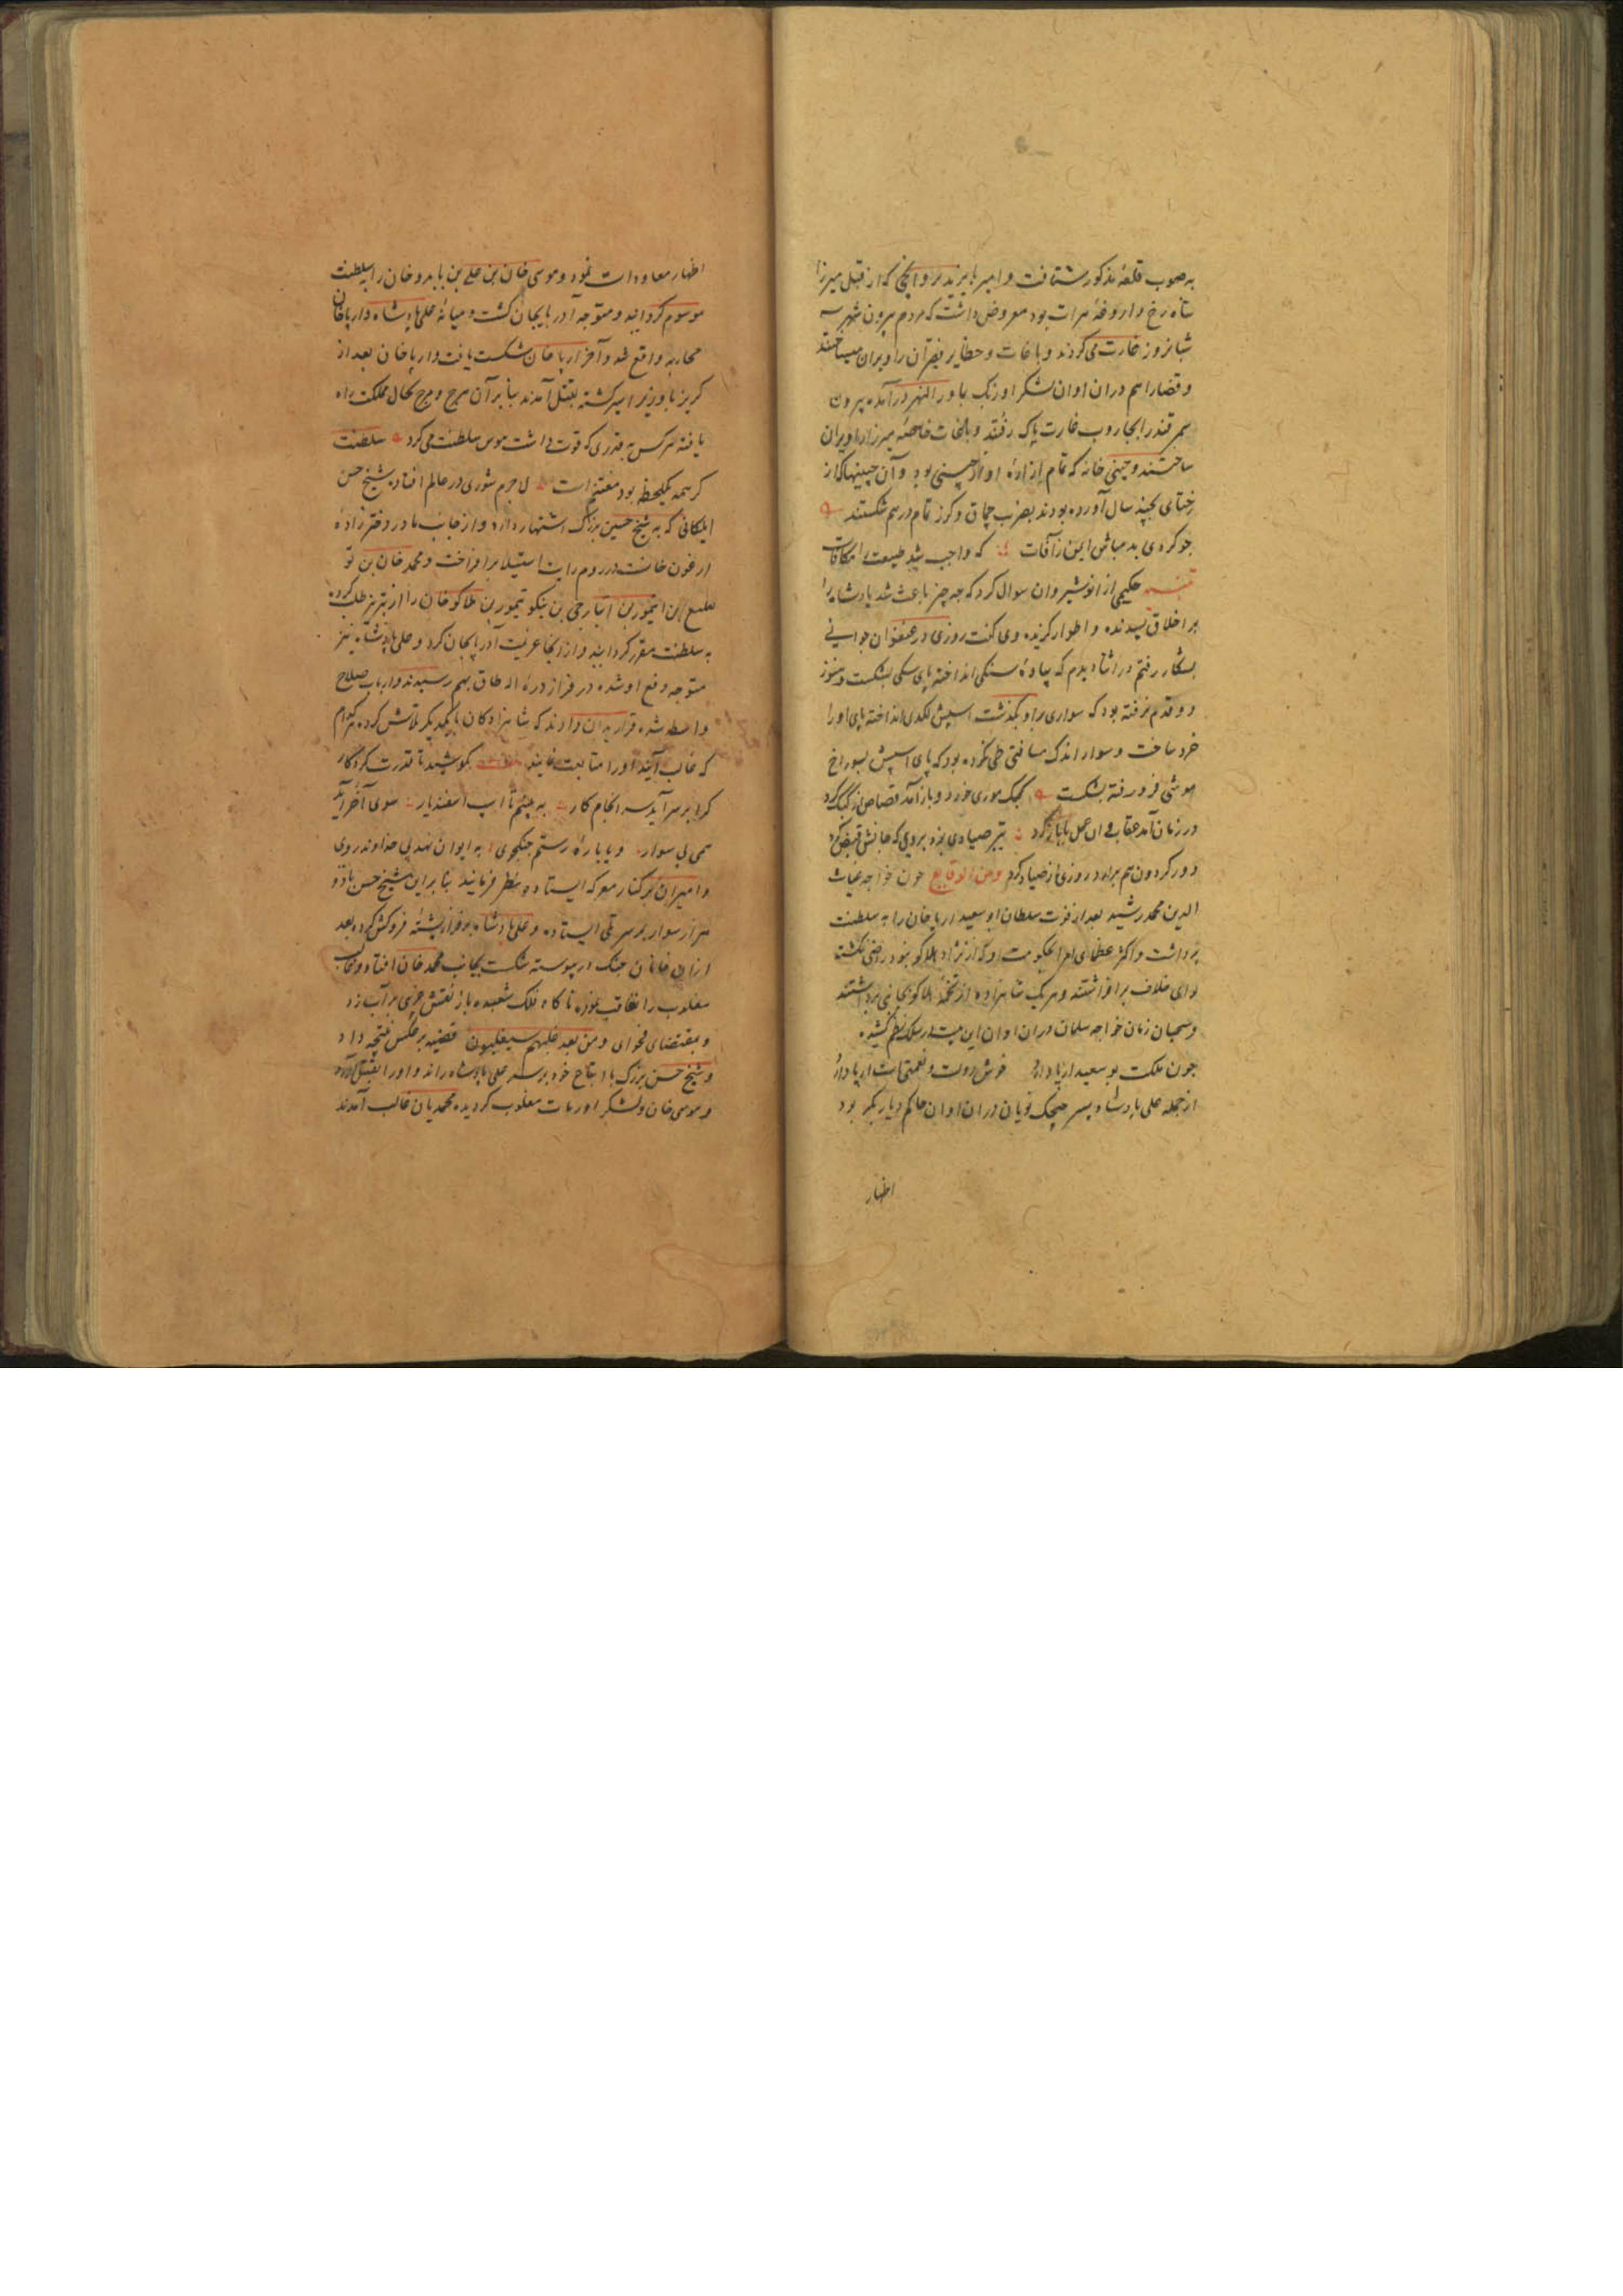 به صوب قلعهٔ مذکور شتافت و امیر بایزید پروانچی که از قبل میرزا
شاه رخ داروغهٔ هرات بود معروض داشت که مردم بیرون شهر سه
شبانروز غارت می کردند و باغات و حظایر فقیران را ویران میساختند
و قضا را هم دران اوان لشکر اوزبک بماوراالنهر درآمده بیرون
سمرقند را بجاروب غارت پاک رفتند و باغات خاصهٔ میرزا را ویران
ساختند و چینی خانه که تمام ازارهٔ او از چینی بود و آن چینیها که از
ختای بچند سال آورده بودند بضرب چماق و کرز تمام درهم شکستند
چو کردی بد مباش ایمن ز آفات که واجب شد طبیعت را مکافات
حکیمی از انوشیروان سوال کرد که چه چیز باعث شد پادشاه را
بر اخلاق پسندیده و اطوار گزیده وی گفت روزی در عنفوان جوانی
بشکار رفتم در اثنا دیدم که پیادهٔ سنکی انداخته پای سکی بشکست و هنوز
دو قدم نرفته بود که سواری براو بگذشت اسپش لکدی انداخته پای او را
خرد ساخت و سوار اندک مسافتی طی نکرده بود که پای اسپش بسوراخ
موشی فرو رفته بشکست کبک موری خورد و باز آمد قصاص از کبک کرد
در زمان آمد عقاب و ان عمل با باز کرد تیر صیادی بزد بر وی که جانش قبض کرد
دور کردون هم برآورد روزی از صیاد کرد ومن الوقایع چون خواجه غیاث
الدین محمد رشید بعد از فوت سلطان ابو سعید ارپا خان را به سلطنت
برداشت و اکثر عظمای امرا بحکومت او که از نژاد هلاکو نبود راضی نکشته
لوای خلاف برافراشتند و هر یک شاهزاده از تخمهٔ هلاکو بخانی برداشتند
و سحبان زمان خواجه سلمان دران اوان این بیت در سلک نظم کشید
چون ملکت بو سعید ارپا دارد خوش دولت و نعمتی است ارپا دارد
از جمله علی پادشاه پسر چیچک نویان دران اوان حاکم دیار بکر بود
اظهار
اظهار معاودات نمود و موسی خان بن علی بن بایدو خان را بسلطنت
موسوم کردانید و متوجه آذربایجان کشت و میانهٔ علی پادشاه و ارپا خان
محاربه واقع شد و آخر ارپا خان شکست یافت و ارپا خان بعد از
کریز با وزیر اسیر کشته بقتل آمدند بنا بر آن هرج و مرج بحال مملکت راه
یافته هر کس به قدری که قوت داشت هوس سلطنت می کرد سلطنت
کر همه یکلحظه بود مغتنم است لاجرم شوری در عالم افتاده شیخ حسن
ایلکانی که به شیخ حسن بزرک اشتهار دارد و از جانب مادر دختر زادهٔ
ارغون خانست در روم رایت استیلا برافراخت و محمد خان بن تو
بن ایتمور بن انبارجی بن منکو تیمور بن هلاکو خان را از تبریز طلب کرده
به سلطنت مقرر کردانید و از انجا عزیمت آذربایجان کرد و علی پادشاه نیز
متوجه دفع او شده در فراز درهٔ اله طاق بهم رسیدند و ارباب صلاح
واسطه شده قرار بدان دادند که شاهزادکان با یکدیکر تلاش کرده هر کدام
که غالب آیند او را متابعت نمایند بکوشید تا قدرت کردکار
کرا بر سر آید سرانجام کار به بینیم تا اسپ اسفندیار سوی آخر آید
همی بی سوار و یا بارهٔ رستم جنکجوی به ایوان نهد بی خداوند روی
و امیران بر کنار معرکه ایستاده بنظر فرمایند بنا بر این شیخ حسن با دو
هزار سوار بر سر تلی ایستاده و علی پادشاه بر فراز پشتهٔ فروکش کرده بعد
ازان خانان جنک در پیوسته شکست بجانب محمد خان افتاد و غالب
مغلوب را تعاقب نموده ناکاه فلک شعبده باز نقش خری بر آب زد
و بمقتضای فحوای ومن بعد غلبهم سیغلبون قضیه برعکس نتیجه داد
و شیخ حسن بزرک با اتباع خود بر سر علی پادشاه راند و او را بقتل آورد
و موسی خان و لشکر اورات مغلوب کردیده محمدیان غالب آمدند